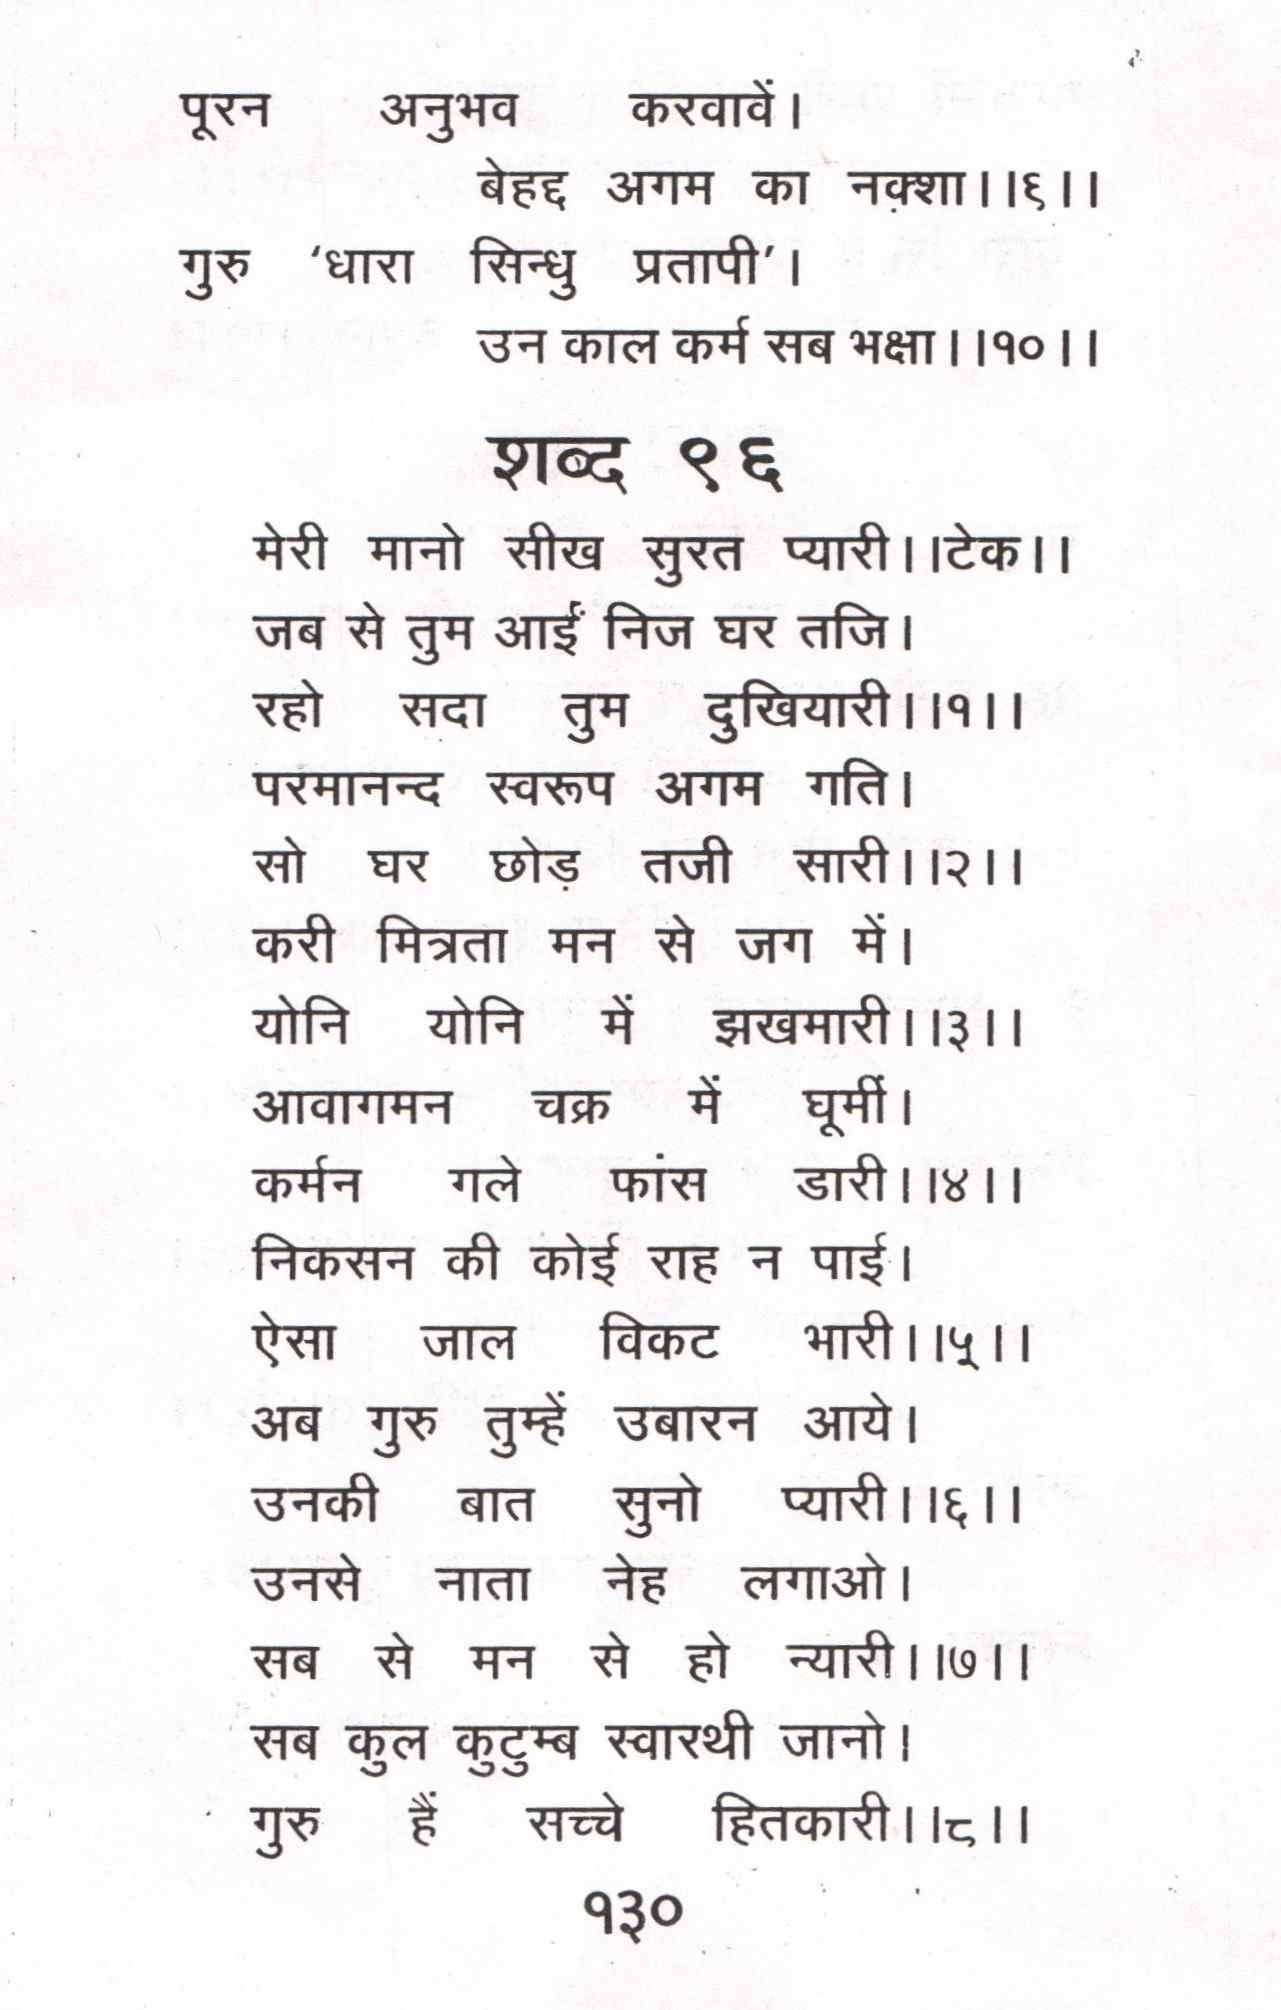 पूरन अनुभव करवावें।
बेहद्द अगम का नक़्शा।।६।।
गुरु ‘धारा सिन्धु प्रतापी’।
उन काल कर्म सब भक्षा।।१०।।
शब्द ९६
मेरी मानो सीख सुरत प्यारी।।टेक।।
जब से तुम आईं निज घर तजि।
रहो सदा तुम दुखियारी।।१।।
परमानन्द स्वरूप अगम गति।
सो घर छोड़ तजी सारी।।२।।
करी मित्रता मन से जग में।
योनि योनि में झखमारी।।३।।
आवागमन चक्र में घूमीं।
कर्मन गले फांस डारी।।४।।
निकसन की कोई राह न पाई।
ऐसा जाल विकट भारी।।५।।
अब गुरु तुम्हें उबारन आये।
उनकी बात सुनो प्यारी।।६।।
उनसे नाता नेह लगाओ।
सब से मन से हो न्यारी।।७।।
सब कुल कुटुम्ब स्वारथी जानो।
गुरु हैं सच्चे हितकारी।।८।।
१३०